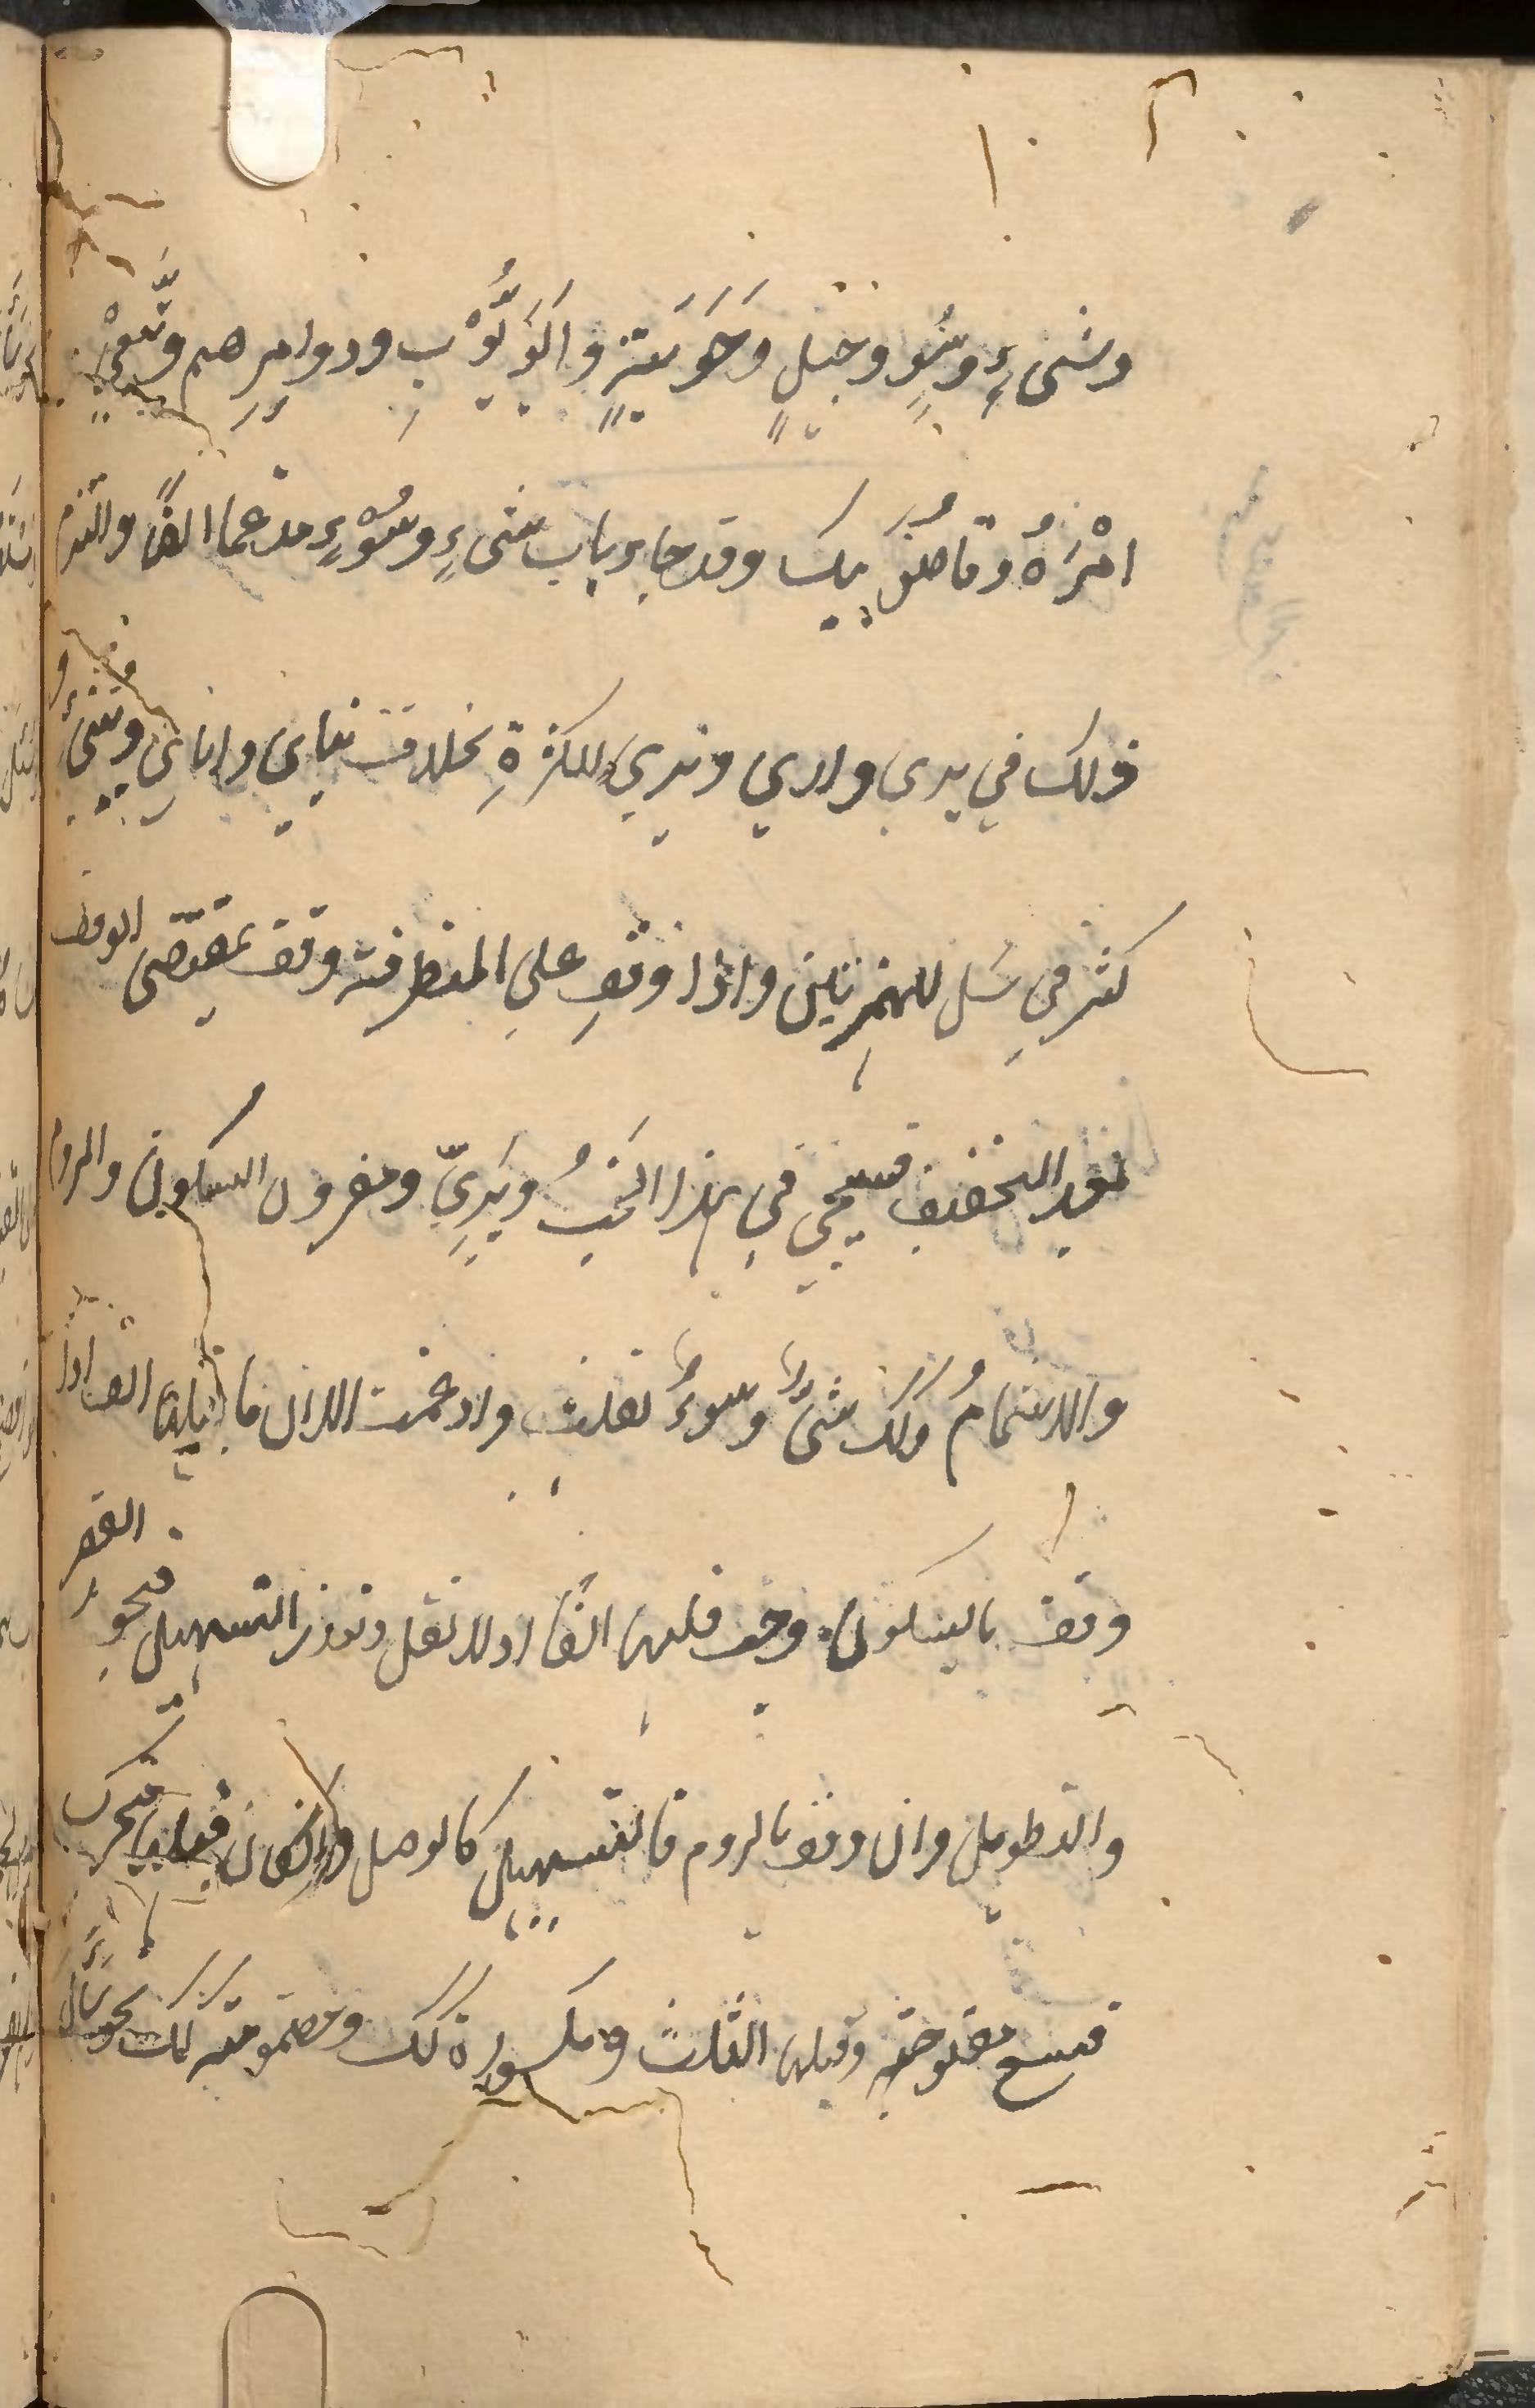 وشىءٍ وسُوٍ وجَيَلٍ وحَوَبَةٍ واَبُوَيُّوبِ وذوامرِهم وتَّبعىَ
امْرَهُ وقاضوَ بيك وقد جاء باب شىءٍ وسُوْءٍ مدغما ايضًا والتزم
ذلك في يرى وارى ويرى للكثرةِ بخلاف ينأى وانأى وينئى و
كثر في سَل للهمزتين واذا وقف على المتطرفة وقف بمقتضى الوقف
بعد التخفيف فيجئ في هذا الخبُ وبَرِىّ ومقروٍ السكون والروم
والاشمامُ وكذلك شىءٌ وسوءٌ نقلت وادغمت الا ان ما قبلها الف اذا
وقف بالسكون وجب قلبها الفًا اذ لا نقل وتعذر التسهيل فيجوز القصر
والتطويل وان وقف بالروم فالتسهيل كالوصل وان كان قبلها متحرك
فتسع مفتوحة وقبلها الثلث ومكسورة كذلك ومضمومة كذلك نحو سَأَل